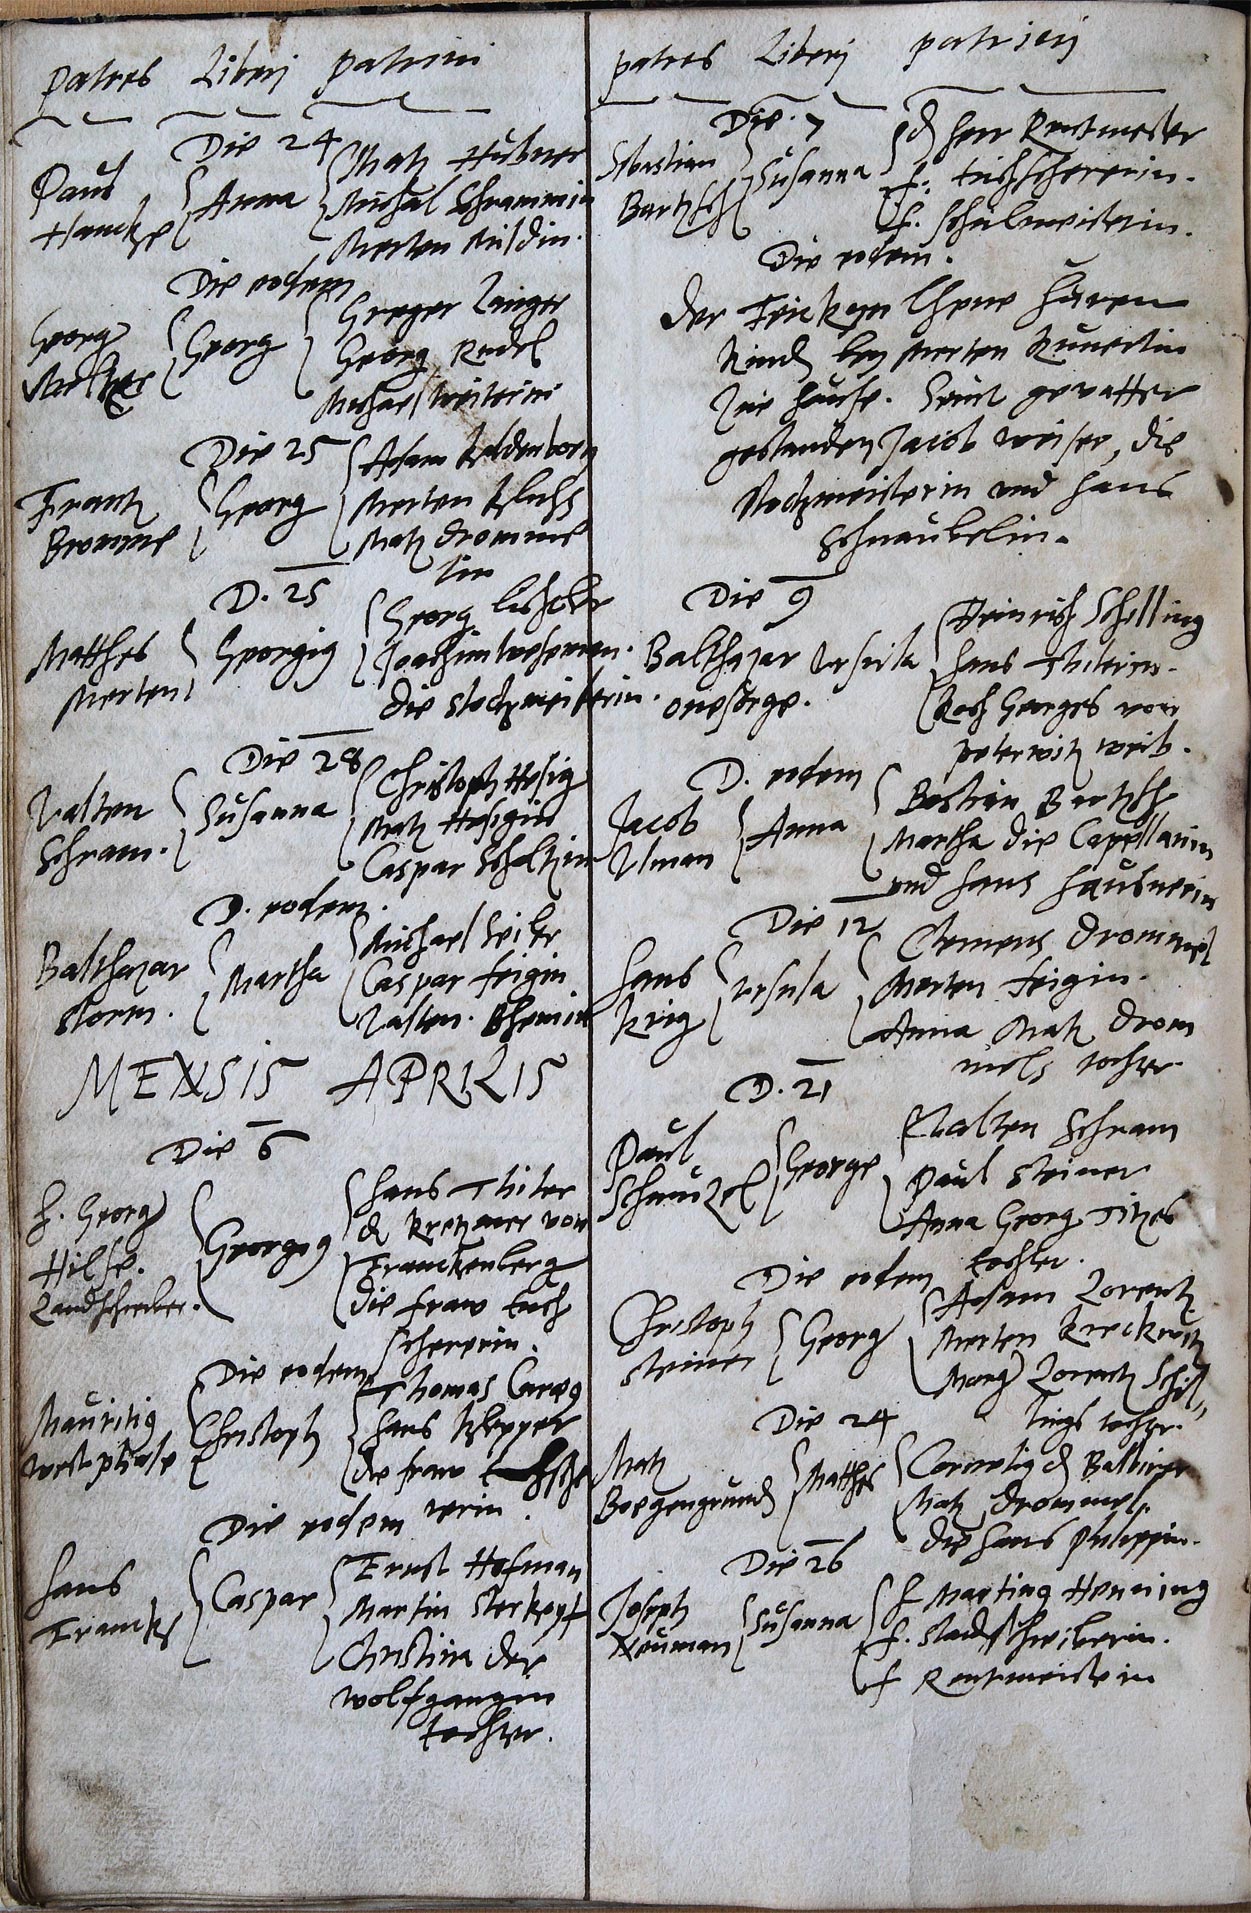 Patres Liberj Patrini
Die 24
Paul
Hanckhe
Anna
Matz Hübner
Michal Schrammin
Merten Mildin.
Die eodem
Georg
Georg
Greger Langer
Georg Rudel
Michael
Die 25
Frantz
Bromme
Georg
Adam Heldenborg
Merten
Matz Drommel
lin
D. 25
Matthes
Merten
Georgig
Georg
Joachim
die Stochmeisterin.
Die 28
Valten
Schram.
Susanna
Christoph Hesig
Matz Hesigin
Caspar Scholtzin
D. eodem.
Balthazar
Storm.
Martha
Michael Seiler
Caspar Feigin
Valten.
MENSIS APRILIS
Die 6
H. Georg
Hilse.
Landschreiber.
Georgig
Hans Thiler
d Kretzmer von
Franckenberg
die fraw Tuch
schererin.
Die eodem
Mauritig
Westphale
Christoph
Thomas
Hans Klepper
die fraw
erin.
Die eodem
Hans
Franck
Caspar
Ernst Hofman
Martin Sterkopf
Christina der
Wolfgangin
tochter.
patres Liberj patrinj
Die 7
Sebastian
Bartsch
Susanna
d Herr Rentmeister
f. tuchschererin.
f. Schulmeisterin.
Die eodem.
Der
Kind bey Merten Kunertin
Ine hause. Seint gevatter
gestanden Jacob Weiser, die
Stochmeisterin und Hans
Schnaubelin.
Die 9
Balthazar
onesorge.
Ursula
Heinrich Schilling
Hans
Koch Georges von
peterwitz weib.
D. eodem
Jacob
Ulman
Anna
Bastian Bartsch
Martha die Capellanin
und Hans Haubnerin
Die 12
Hans
Krig
Ursula
Clemens Drommel
Merten Feigin.
Anna Matz Drom
mels tochter.
D. 21
Paul
Schmuzel
George
Valten Schram
Paul Steiner
Anna Georg Titzes
tochter.
Die eodem
Christoph
Steiner
Georg
Adam Lorentz
Merten Kreckwitz
Marg Lorentz Schil
lings tochter.
Die 24
Matz
Boegengrund
Matthes
Cornelig d Balbirer
Matz Drommel.
die Hans Philippin.
Die 26
Joseph
Neuman
Susanna
H Marting Henning
f. Stadschreiberin.
f Rentmeisterin